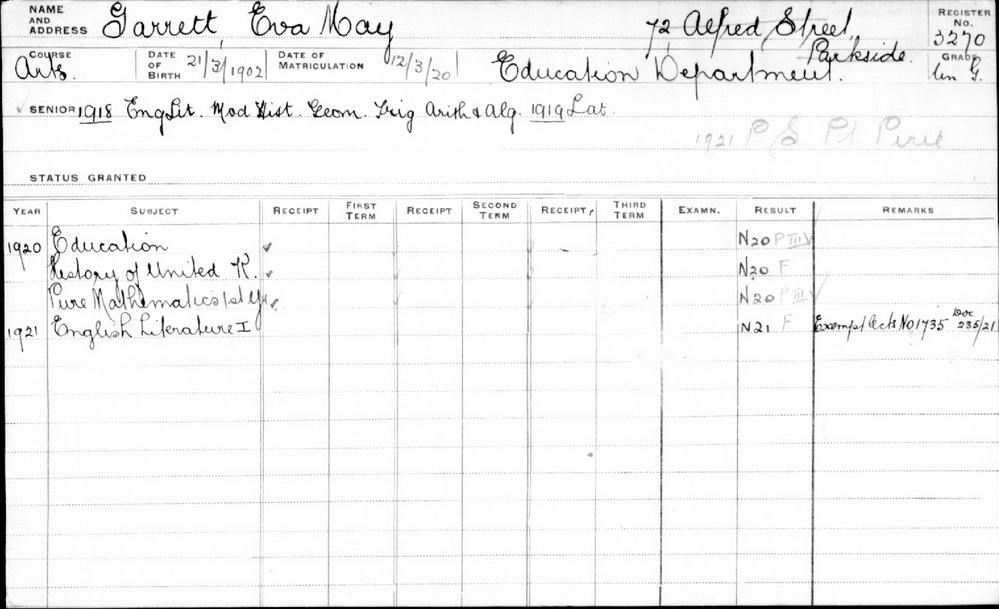 NAME AND ADDRESS Garrett, Eva May 72 Alfred Street, Parkside. REGISTER No. 3270
COURSE Arts. DATE OF BIRTH 21/3/1902 DATE OF MATRICULATION 12/3/20 Education Department. GRADE
SENIOR 1918 Eng Lit. Mod Hist. Geom. Trig Arith & Alg. 1919 Lat.
1921 P S Pt. Pirie
STATUS GRANTED
YEAR SUBJECT RECEIPT FIRST TERM RECEIPT SECOND TERM RECEIPT, THIRD TERM EXAMN. RESULT REMARKS
1920 Education ✓ N20 P III ✓
History of United K. ✓ N20 F
Pure Mathematics 1st Yr ✓ N20 P III ✓
1921 English Literature I N21 F Exempt Lects No 1735 Doc 235/21